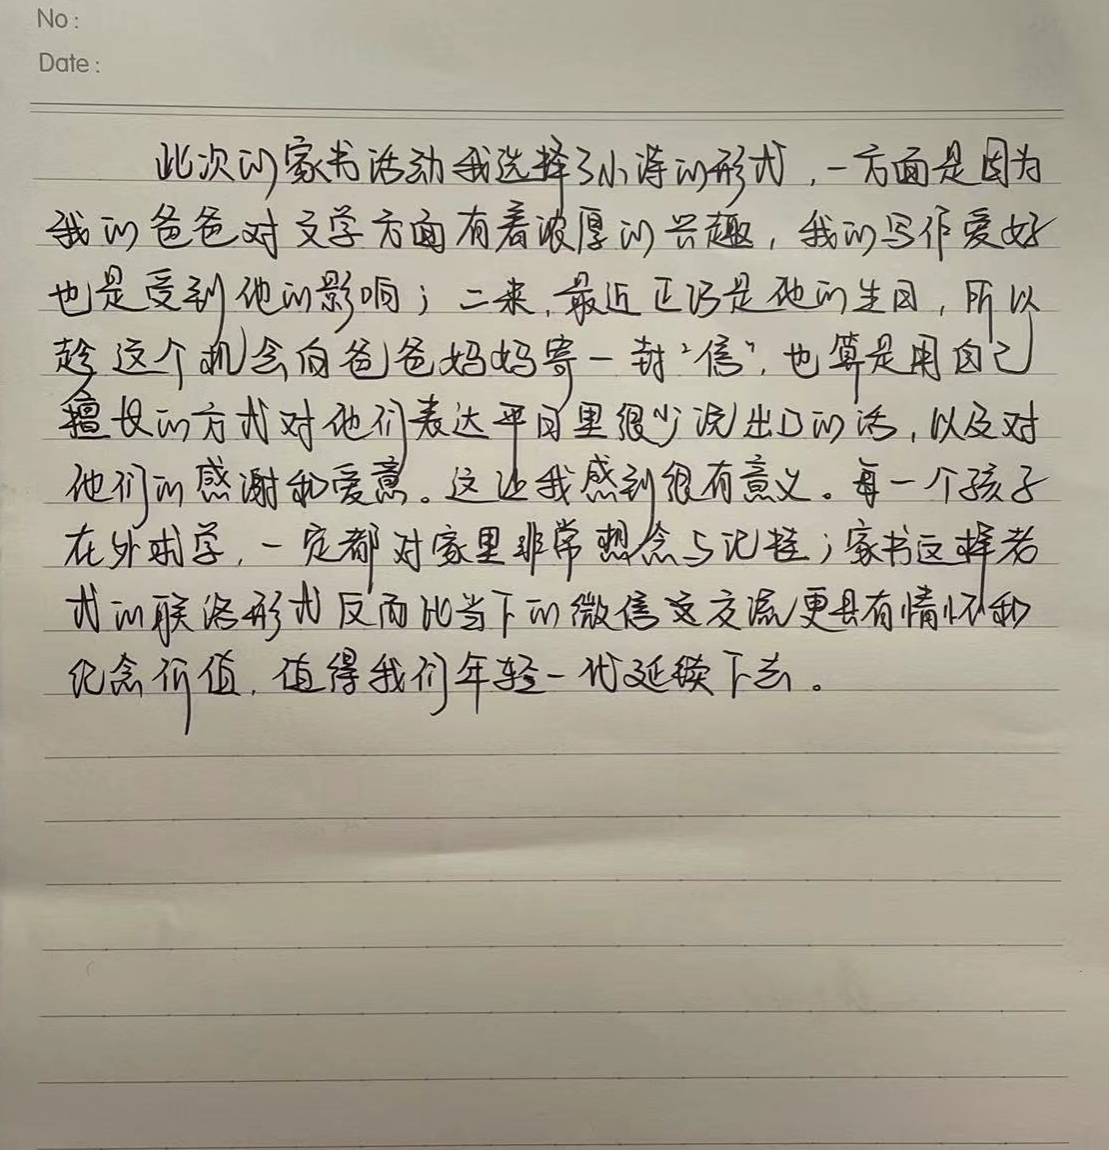 No:
Date:
此次的家书活动我选择了小诗的形式，一方面是因为
我的爸爸对文学方面有着浓厚的兴趣，我的写作爱好
也是受到他的影响；二来，最近正巧是他的生日，所以
趁这个机会向爸爸妈妈寄一封“信”，也算是用自己
擅长的方式对他们表达平日里很少说出口的话，以及对
他们的感谢和爱意。这让我感到很有意义。每一个孩子
在外求学，一定都对家里非常想念与记挂；家书这样老
式的联络形式反而比当下的微信这交流更具有情怀和
纪念价值，值得我们年轻一代延续下去。